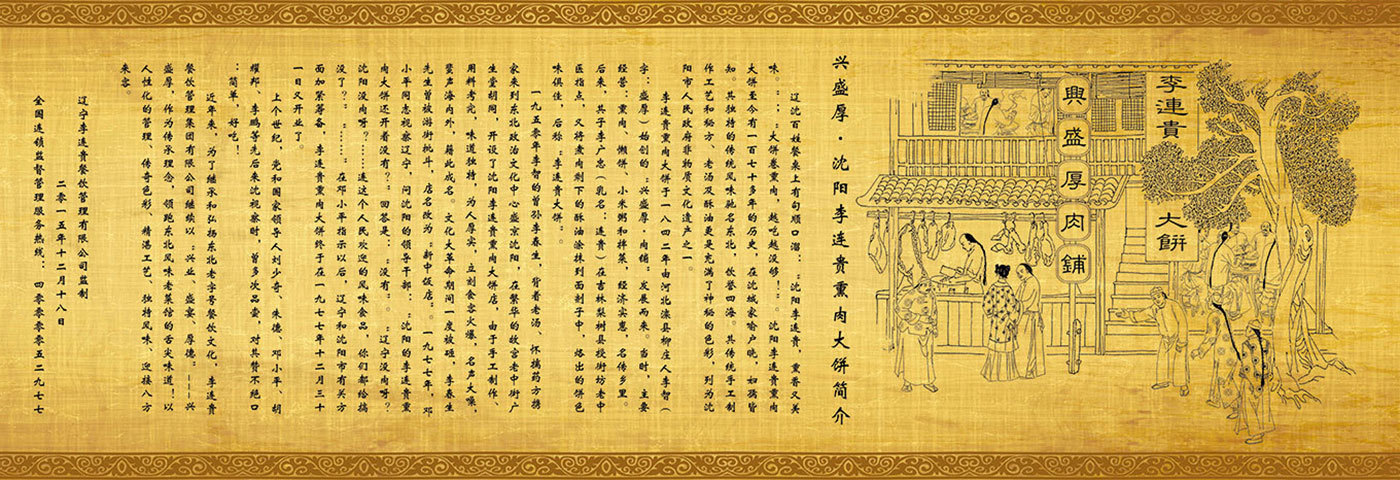 李連貴
大餅
興盛厚肉鋪
兴盛厚·沈阳李连贵熏肉大饼简介
辽沈百姓餐桌上有句顺口溜：“沈阳李连贵，熏香又美
味。：：大饼卷熏肉，越吃越没够！”。沈阳李连贵熏肉
大饼至今有一百七十多年的历史，在沈城家喻户晓，如揣皆
知。其独特的传统风味驰名东北，饮誉四海。其传统手工制
作工艺和秘方、老汤及酥油更是充满了神秘的色彩，列为沈
阳市人民政府非物质文化遗产之一。
李连贵熏肉大饼于一八四二年由河北滦县柳庄人李智（
字：盛厚）始创的“兴盛厚·肉铺”发展而来。当时，主要
经营：熏肉、懒饼、小米粥和拌菜，经济实惠，名传乡里。
后来，其子李广忠（乳名：连贵）在吉林梨树县授街坊老中
医指点，又将煮肉剩下的酥油涂抹到面剂子中，烙出的饼色
味俱佳，后称“李连贵大饼”。
一九五零年李智的曾孙李春生，背着老汤、怀揣药方携
家来到东北政治文化中心盛京沈阳，在繁华的故宫老中街广
生堂胡同，开设了沈阳李连贵熏肉大饼店，由于手工制作、
用料考究，味道独特，为人厚实，立刻食客火爆，名声大噪，
蜚声海内外，藉此成名。文化大革命期间一度被砸，李春生
先生曾被游街批斗，店名改为“新中饭店”。一九七七年，邓
小平同志视察辽宁，问沈阳的领导干部：“沈阳的李连贵熏
肉大饼还开着没有？”回答是：“没有”。“辽宁没肉呀？
沈阳没肉呀？……连这个人民欢迎的风味食品，你们都给搞
没了？”……在邓小平指示以后，辽宁和沈阳市有关方
面加紧筹备，李连贵熏肉大饼终于在一九七七年十二月三十
一日又开业了。
上个世纪，党和国家领导人刘少奇、朱德、邓小平、胡
耀邦、李鹏等先后来沈视察时，曾多次品尝，对其赞不绝口
：简单，好吃！
近年来，为了继承和弘扬东北老字号餐饮文化，李连贵
餐饮管理集团有限公司继续以“兴业、盛宴、厚德”——兴
盛厚，作为传承理念，领跑东北风味老菜馆的舌尖味道！以
人性化的管理、传奇色彩、精湛工艺、独特风味、迎接八方
来客。
辽宁李连贵餐饮管理有限公司监制
二零一五年十二月十八日
全国连锁监督管理服务热线：四零零零零五二九七七